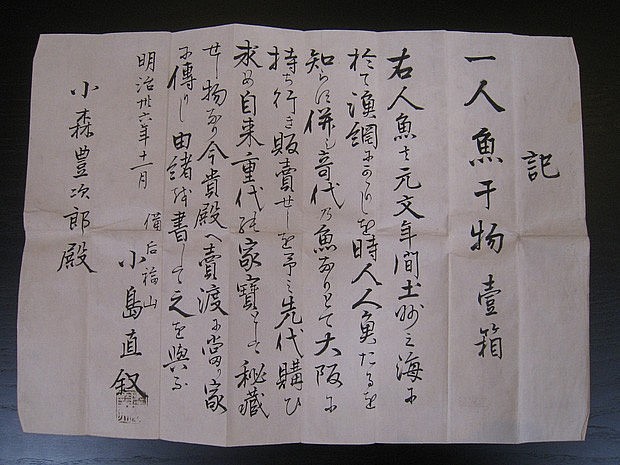 記
一人魚干物 壹箱
右人魚ハ元文年間土州之海に
於て漁網にかゝりしを時人人魚たるを
知らす併も奇代乃魚なりとて大阪に
持ち行き販賣せしを予之先代購ひ
求め自来重代の家寶として秘藏
せし物なり今貴殿へ賣渡に當り家
に傳りし由緒を書して之を與ふ
明治卅六年十一月
備后福山
小島直
小森豊次郎殿